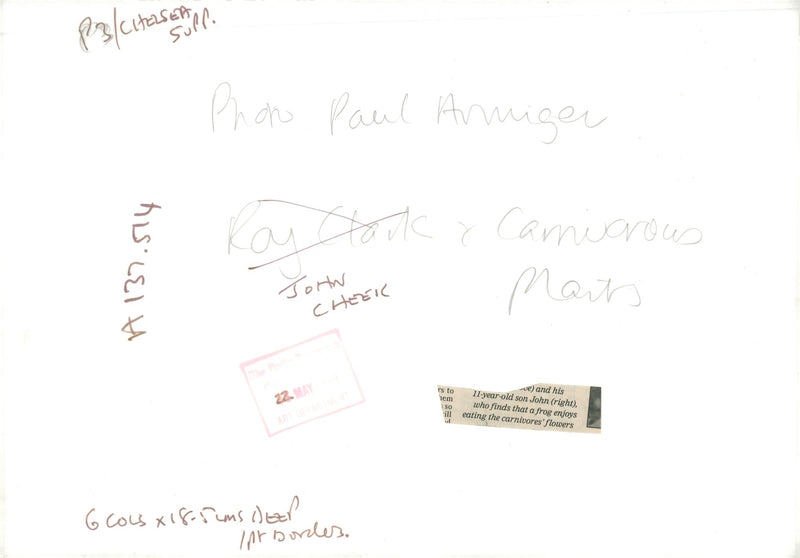 P3/CHELSEA
SUPP.
Photo Paul Armiger
Ray Clark & Carnivorous
Plants
JOHN
CHEEK
A 137.574
22 MAY
ART DEPARTMENT
ve) and his
11-year-old son John (right),
who finds that a frog enjoys
eating the carnivores' flowers
rs to
hem
so
ill
of
6 COLS x 18.5 cms DEEP
1pt Border.